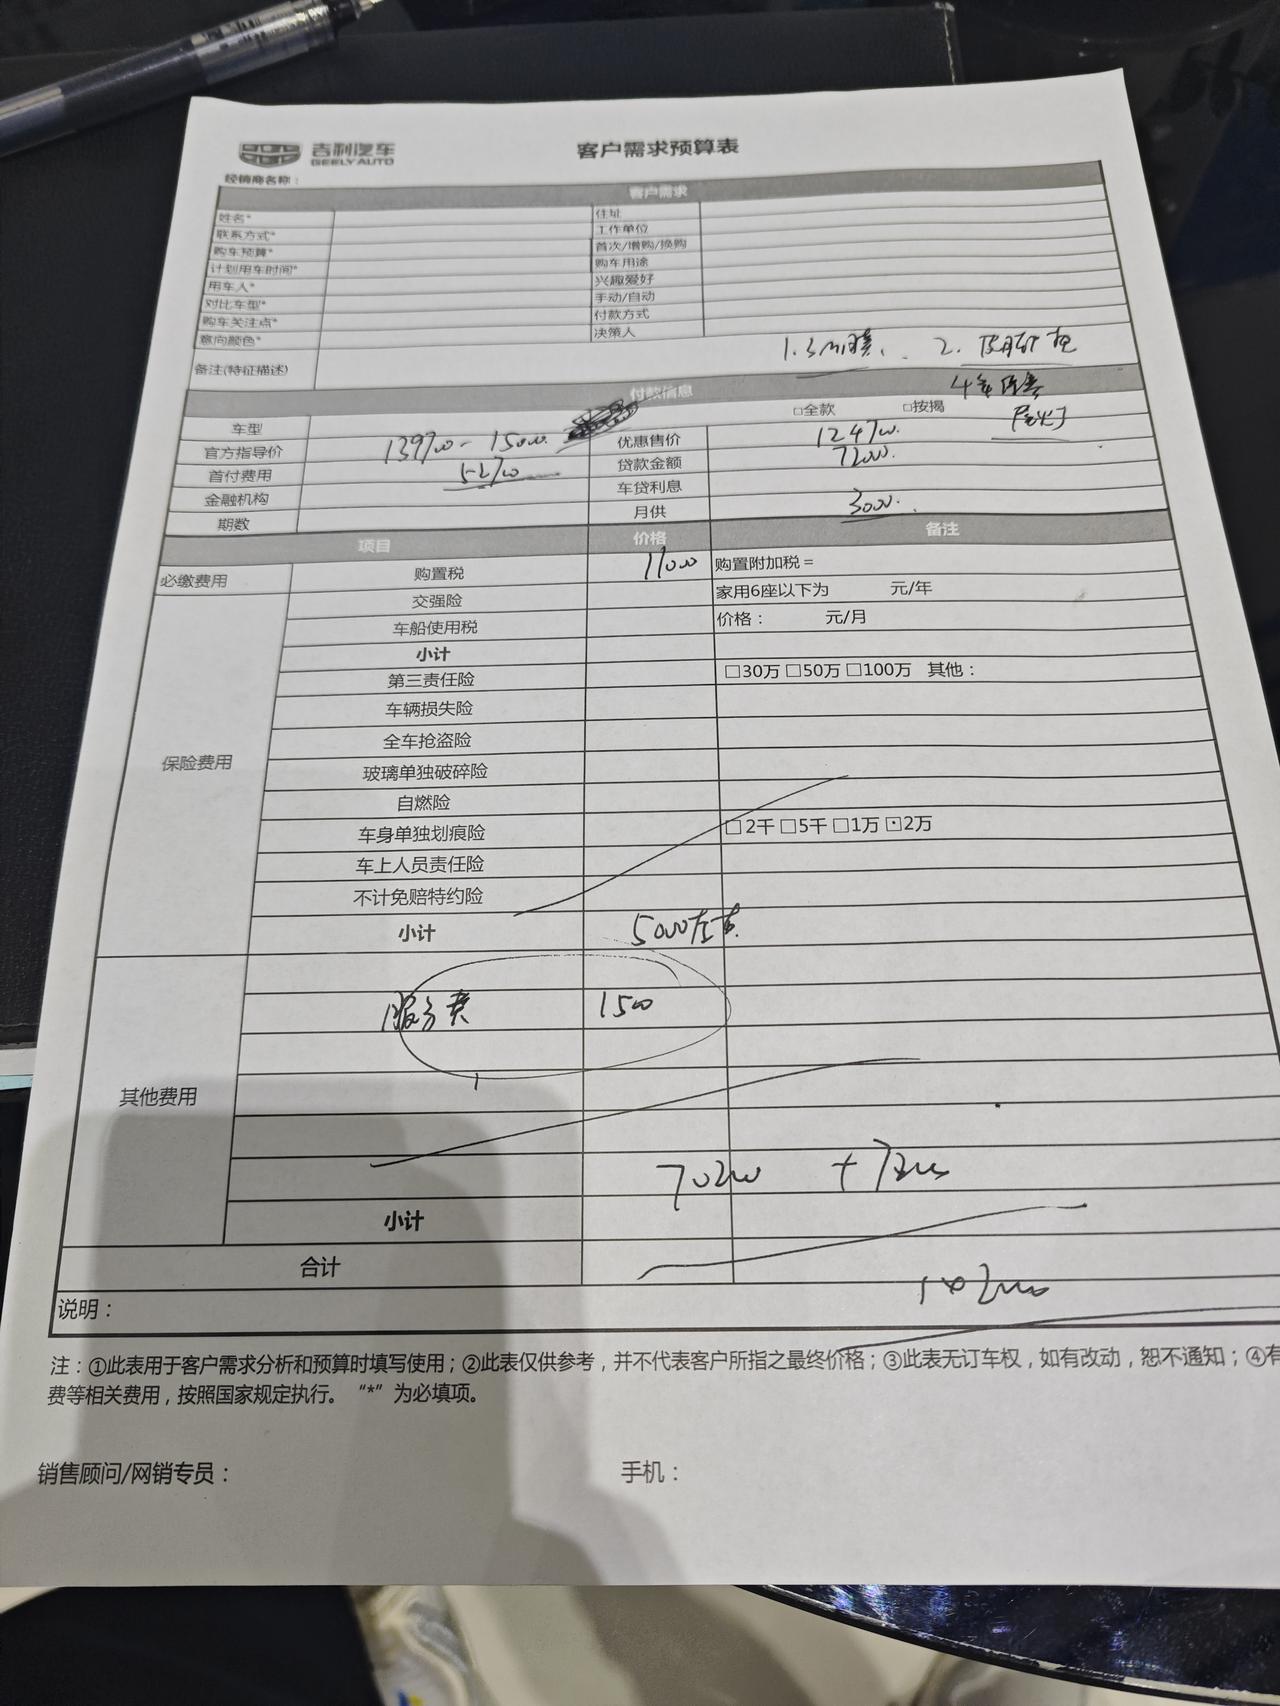 吉利汽车
GEELY AUTO
客户需求预算表
经销商名称：
客户需求
姓名* 住址
联系方式* 工作单位
购车预算* 首次/增购/换购
计划用车时间* 购车用途
用车人* 兴趣爱好
对比车型* 手动/自动
购车关注点* 付款方式
意向颜色* 决策人
备注(特征描述) 1.3M膜、 2.
付款信息 4年
车型 □全款 □按揭
官方指导价 139700-15000. 优惠售价 124700.
首付费用 52700 贷款金额 72000.
金融机构 车贷利息
期数 月供 3000.
项目 价格 备注
必缴费用 购置税 11000 购置附加税＝
保险费用 交强险 家用6座以下为 元/年
车船使用税 价格： 元/月
小计
第三责任险 □30万 □50万 □100万 其他：
车辆损失险
全车抢盗险
玻璃单独破碎险
自燃险
车身单独划痕险 □2千 □5千 □1万 □2万
车上人员责任险
不计免赔特约险
小计 5000左右.
其他费用
服务费 1500
70200 + 72000
小计
合计
说明：
注：①此表用于客户需求分析和预算时填写使用；②此表仅供参考，并不代表客户所指之最终价格；③此表无订车权，如有改动，恕不通知；④有
费等相关费用，按照国家规定执行。 “*”为必填项。
销售顾问/网销专员： 手机：